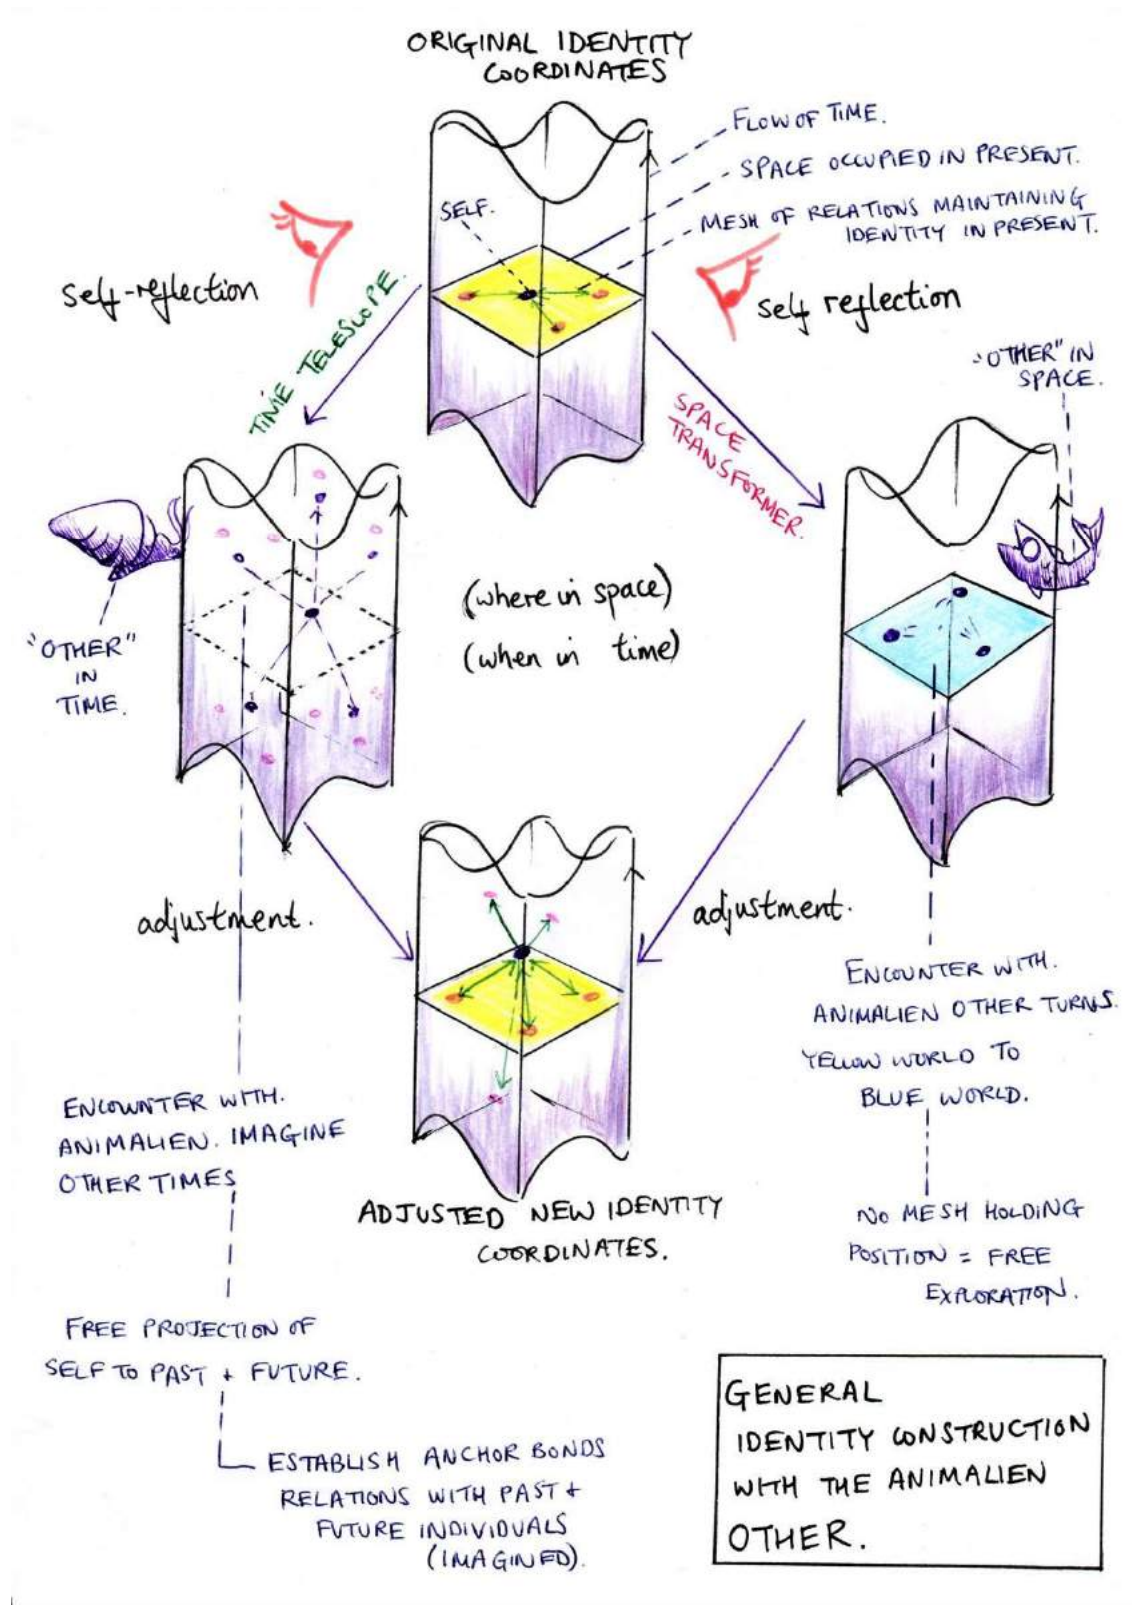 ORIGINAL IDENTITY
COORDINATES
FLOW OF TIME.
SPACE OCCUPIED IN PRESENT.
MESH OF RELATIONS MAINTAINING
IDENTITY IN PRESENT.
SELF.
self-reflection
self reflection
TIME TELESCOPE.
SPACE
TRANSFORMER.
"OTHER" IN
SPACE.
(where in space)
(when in time)
"OTHER"
IN
TIME.
adjustment.
adjustment.
ENCOUNTER WITH.
ANIMALIEN OTHER TURNS.
YELLOW WORLD TO
BLUE WORLD.
ENCOUNTER WITH.
ANIMALIEN. IMAGINE
OTHER TIMES
ADJUSTED NEW IDENTITY
COORDINATES.
NO MESH HOLDING
POSITION = FREE
EXPLORATION.
FREE PROJECTION OF
SELF TO PAST + FUTURE.
ESTABLISH ANCHOR BONDS
RELATIONS WITH PAST +
FUTURE INDIVIDUALS
(IMAGINED).
GENERAL
IDENTITY CONSTRUCTION
WITH THE ANIMALIEN
OTHER.